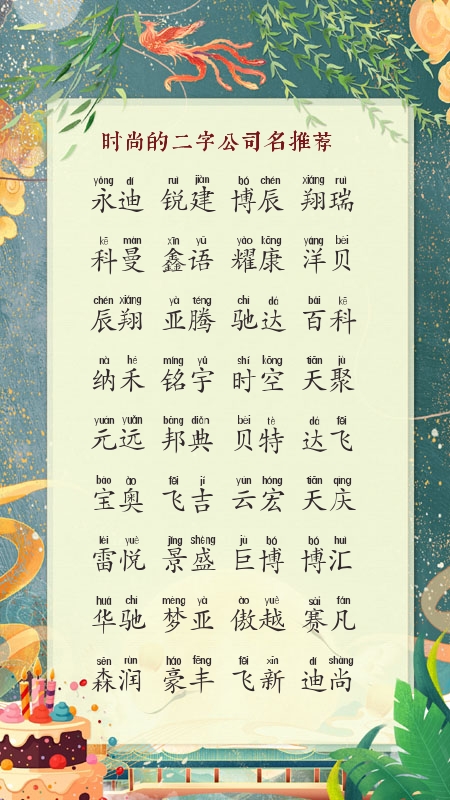 时尚的二字公司名推荐
yǒng dí ruì jiàn bó chén xiáng ruì
永迪 锐建 博辰 翔瑞
kē màn xīn yǔ yào kāng yáng bèi
科曼 鑫语 耀康 洋贝
chén xiáng yà téng chí dá bǎi kē
辰翔 亚腾 驰达 百科
nà hé míng yǔ shí kōng tiān jù
纳禾 铭宇 时空 天聚
yuán yuǎn bāng diǎn bèi tè dá fēi
元远 邦典 贝特 达飞
bǎo ào fēi jí yún hóng tiān qìng
宝奥 飞吉 云宏 天庆
léi yuè jǐng shèng jù bó bó huì
雷悦 景盛 巨博 博汇
huá chí mèng yà ào yuè sài fán
华驰 梦亚 傲越 赛凡
sēn rùn háo fēng fēi xīn dí shàng
森润 豪丰 飞新 迪尚